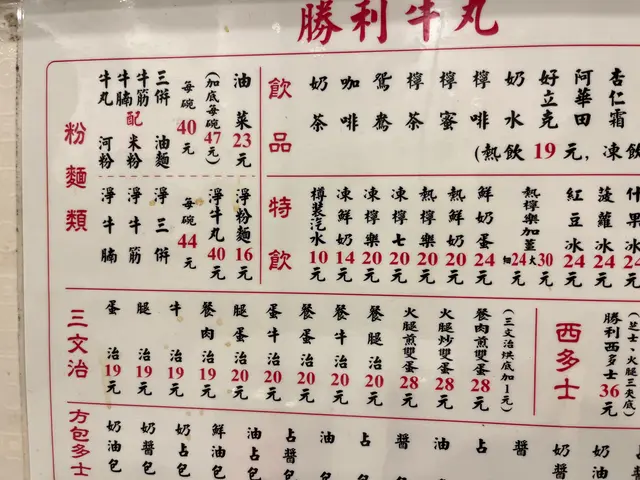 勝利牛丸
粉麵類
牛丸 牛腩 牛筋 三併
配
河粉 米粉 油麵
每碗40元
(加底每碗47元)
油菜23元
淨牛腩
淨牛筋
淨三併
每碗44元
淨牛丸40元
淨粉麵16元
飲品
奶茶
咖啡
鴛鴦
檸茶
檸蜜
檸啡
奶水
好立克
阿華田
杏仁霜
(熱飲19元，凍飲
特飲
樽裝汽水10元
凍鮮奶14元
凍檸樂20元
凍檸七20元
熱檸樂20元
熱鮮奶20元
鮮奶蛋24元
熱檸樂加薑 細24大30
紅豆冰24元
菠蘿冰24元
什果冰24元
三文治
蛋治19元
腿治19元
牛治19元
餐肉治19元
腿蛋治20元
蛋牛治20元
餐蛋治20元
餐牛治20元
餐腿治20元
火腿煎雙蛋28元
火腿炒雙蛋28元
餐肉煎雙蛋28元
(三文治烘底加1元)
西多士
(芝士、火腿三夾底)
勝利西多士36元
方包多士
奶油包
奶醬包
奶占包
鮮油包
油占包
占醬包
油
占
醬
油
占
醬
奶醬
奶油